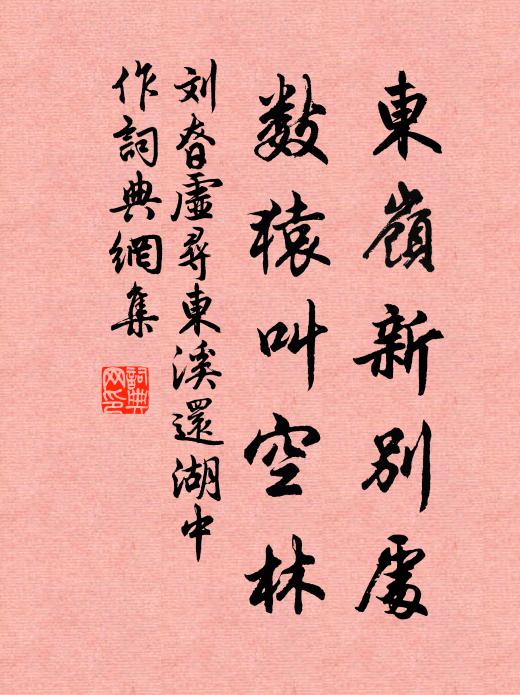 東嶺新別處
数猿叫空林
刘眘虛尋東溪還湖中
作詞典網集
詞典网印